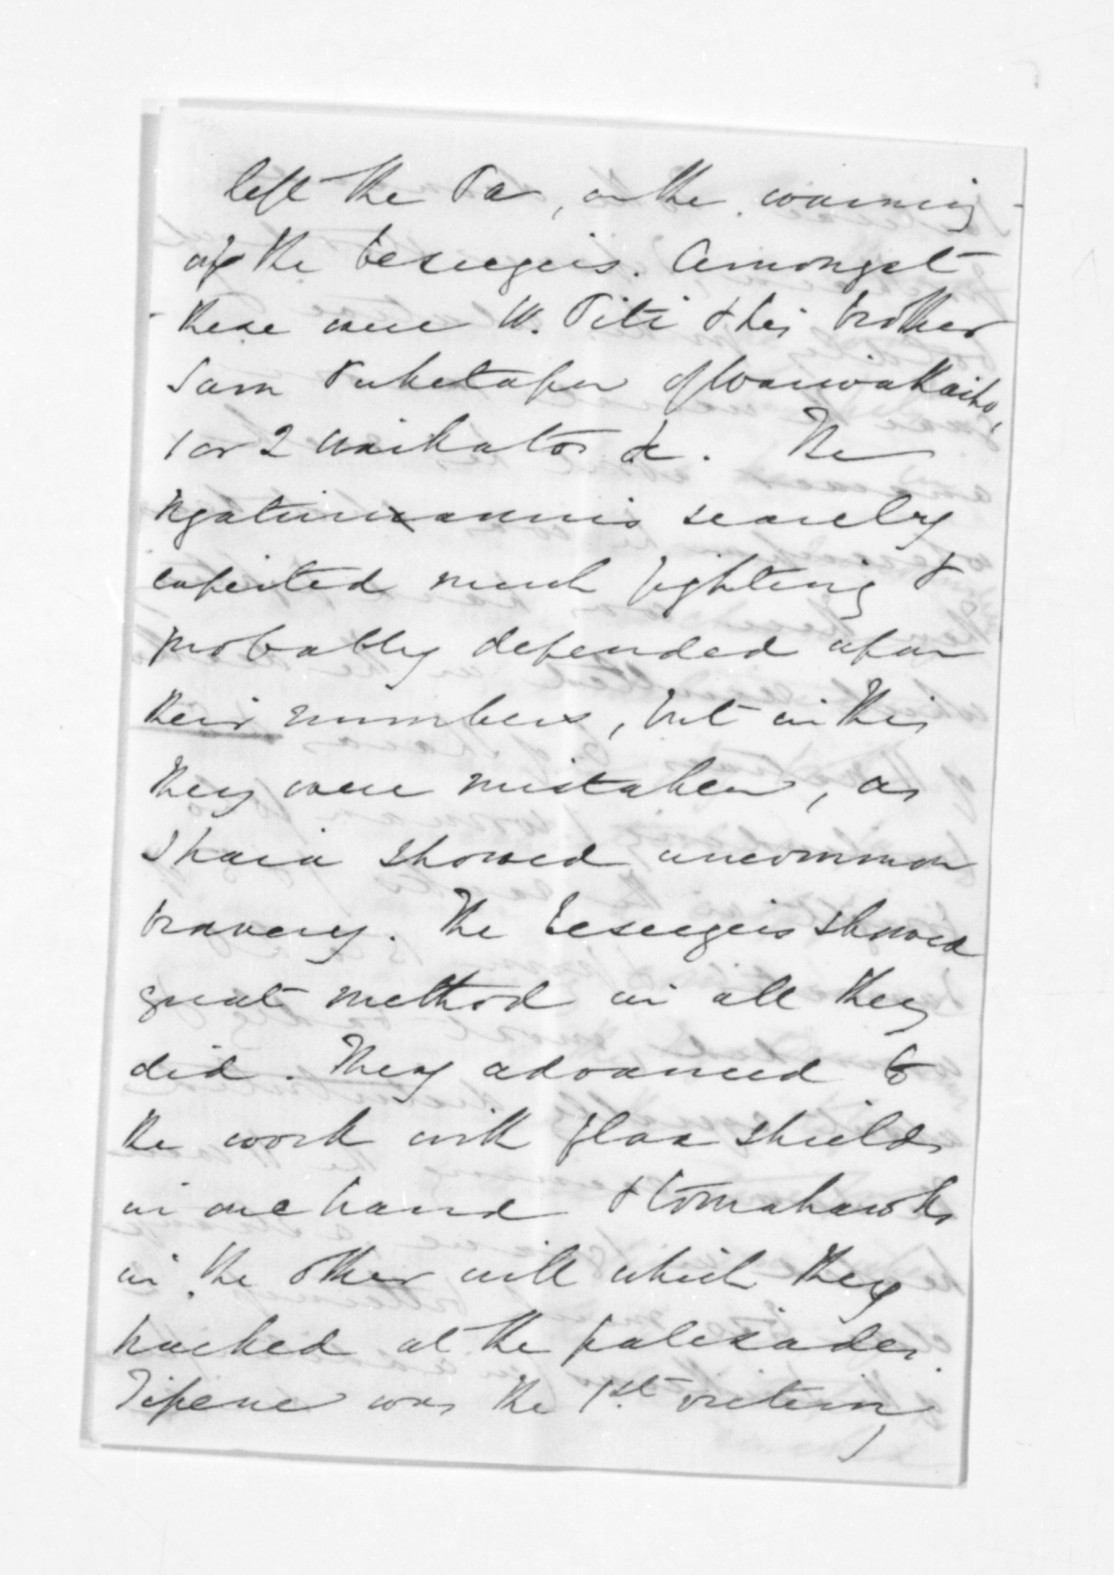 left the Pa, on the warning
of the beseigers. Amongst
these were W. Piti & his brother
Sam Puketapu of Waiwakaiho,
1 or 2 Waikatos &c. The
Ngatiruanuis scarcely
expected much fighting &
probably depended upon
their numbers, but in this
they were mistaken, as
Ihaia showed uncommon
bravery. The beseigers showed
great method in all they
did. They advanced to
the work with flax shields
in one hand & tomahawks
in the other with which they
hacked at the palisades.
Tipene was the 1st. victim,